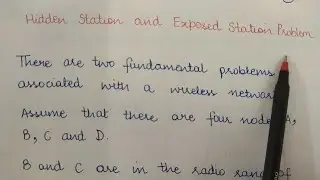 Hidden Station and Exposed Station Problem
There are two fundamental problems
associated with a wireless network.
Assume that there are four node A,
B, C and D.
B and C are in the radio range of